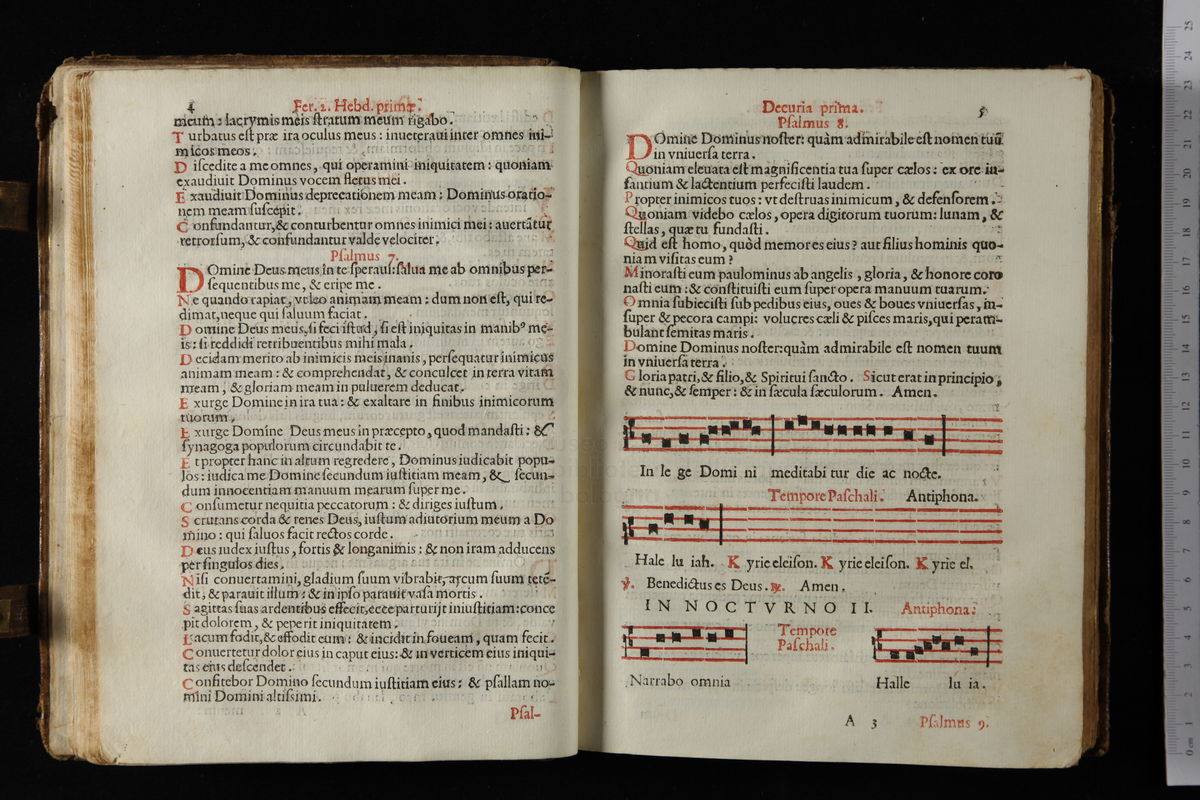 4
Fer. 2. Hebd. primæ.
meum : lacrymis meis ſtratum meum rigabo.
T urbatus eſt præ ira oculus meus : inueteraui inter omnes ini-
micos meos.
D iſcedite a me omnes, qui operamini iniquitatem : quoniam
exaudiuit Dominus vocem fletus mei.
E xaudiuit Dominus deprecationem meam : Dominus oratio-
nem meam ſuſcepit.
C onfundantur, & conturbentur omnes inimici mei : auertãtur
retrorſum, & confundantur valde velociter.
Pſalmus 7.
D Omine Deus meus in te ſperaui: ſalua me ab omnibus per-
ſequentibus me, & eripe me.
N e quando rapiat, vt leo animam meam : dum non eſt, qui re-
dimat, neque qui ſaluum faciat.
D omine Deus meus, ſi feci iſtud, ſi eſt iniquitas in manibꝰ me-
is : ſi reddidi retribuentibus mihi mala.
D ecidam merito ab inimicis meis inanis, perſequatur inimicus
animam meam : & comprehendat, & conculcet in terra vitam
meam, & gloriam meam in puluerem deducat.
E xurge Domine in ira tua : & exaltare in finibus inimicorum
tuorum.
E xurge Domine Deus meus in præcepto, quod mandaſti : &
ſynagoga populorum circundabit te.
E t propter hanc in altum regredere, Dominus iudicabit popu-
los : iudica me Domine ſecundum iuſtitiam meam, & ſecun-
dum innocentiam manuum mearum ſuper me.
C onſumetur nequitia peccatorum : & diriges iuſtum.
S crutans corda & renes Deus, iuſtum adiutorium meum a Do
mino : qui ſaluos facit rectos corde.
D eus iudex iuſtus, fortis & longanimis : & non iram adducens
per ſingulos dies.
N iſi conuertamini, gladium ſuum vibrabit, arcum ſuum teten-
dit, & parauit illum : & in ipſo parauit vaſa mortis.
S agittas ſuas ardentibus effecit, ecce parturijt iniuſtitiam: conce
pit dolorem, & peperit iniquitatem.
L acum fodit, & effodit eum : & incidit in foueam, quam fecit.
C onuertetur dolor eius in caput eius: & in verticem eius iniqui-
tas eius deſcendet.
C onfitebor Domino ſecundum iuſtitiam eius : & pſallam no-
mini Domini altiſsimi.
Pſal-
Decuria prima.
5
Pſalmus 8.
D Omine Dominus noſter: quàm admirabile eſt nomen tuũ
in vniuerſa terra.
Quoniam eleuata eſt magnificentia tua ſuper cælos : ex ore in-
fantium & lactentium perfeciſti laudem.
Propter inimicos tuos : vt deſtruas inimicum, & defenſorem.
Quoniam videbo cælos, opera digitorum tuorum: lunam, &
ſtellas, quæ tu fundaſti.
Quid eſt homo, quòd memor es eius? aut filius hominis quo-
niam viſitas eum ?
Minoraſti eum paulominus ab angelis, gloria, & honore coro
naſti eum : & conſtituiſti eum ſuper opera manuum tuarum.
O mnia ſubieciſti ſub pedibus eius, oues & boues vniuerſas, in-
ſuper & pecora campi: volucres cæli & piſces maris, qui peram-
bulant ſemitas maris.
Domine Dominus noſter: quàm admirabile eſt nomen tuum
in vniuerſa terra.
G loria patri, & filio, & Spiritui ſancto. Sicut erat in principio,
& nunc, & ſemper : & in ſæcula ſæculorum. Amen.
In le ge Domi ni meditabi tur die ac nocte.
Tempore Paſchali. Antiphona.
Hale lu iah. K yrie eleiſon. K yrie eleiſon. K yrie el.
℣. Benedictus es Deus. ℟. Amen.
IN NOCTVRNO II. Antiphona.
Tempore
Paſchali.
Narrabo omnia
Halle lu ia.
A 3
Pſalmus 9.